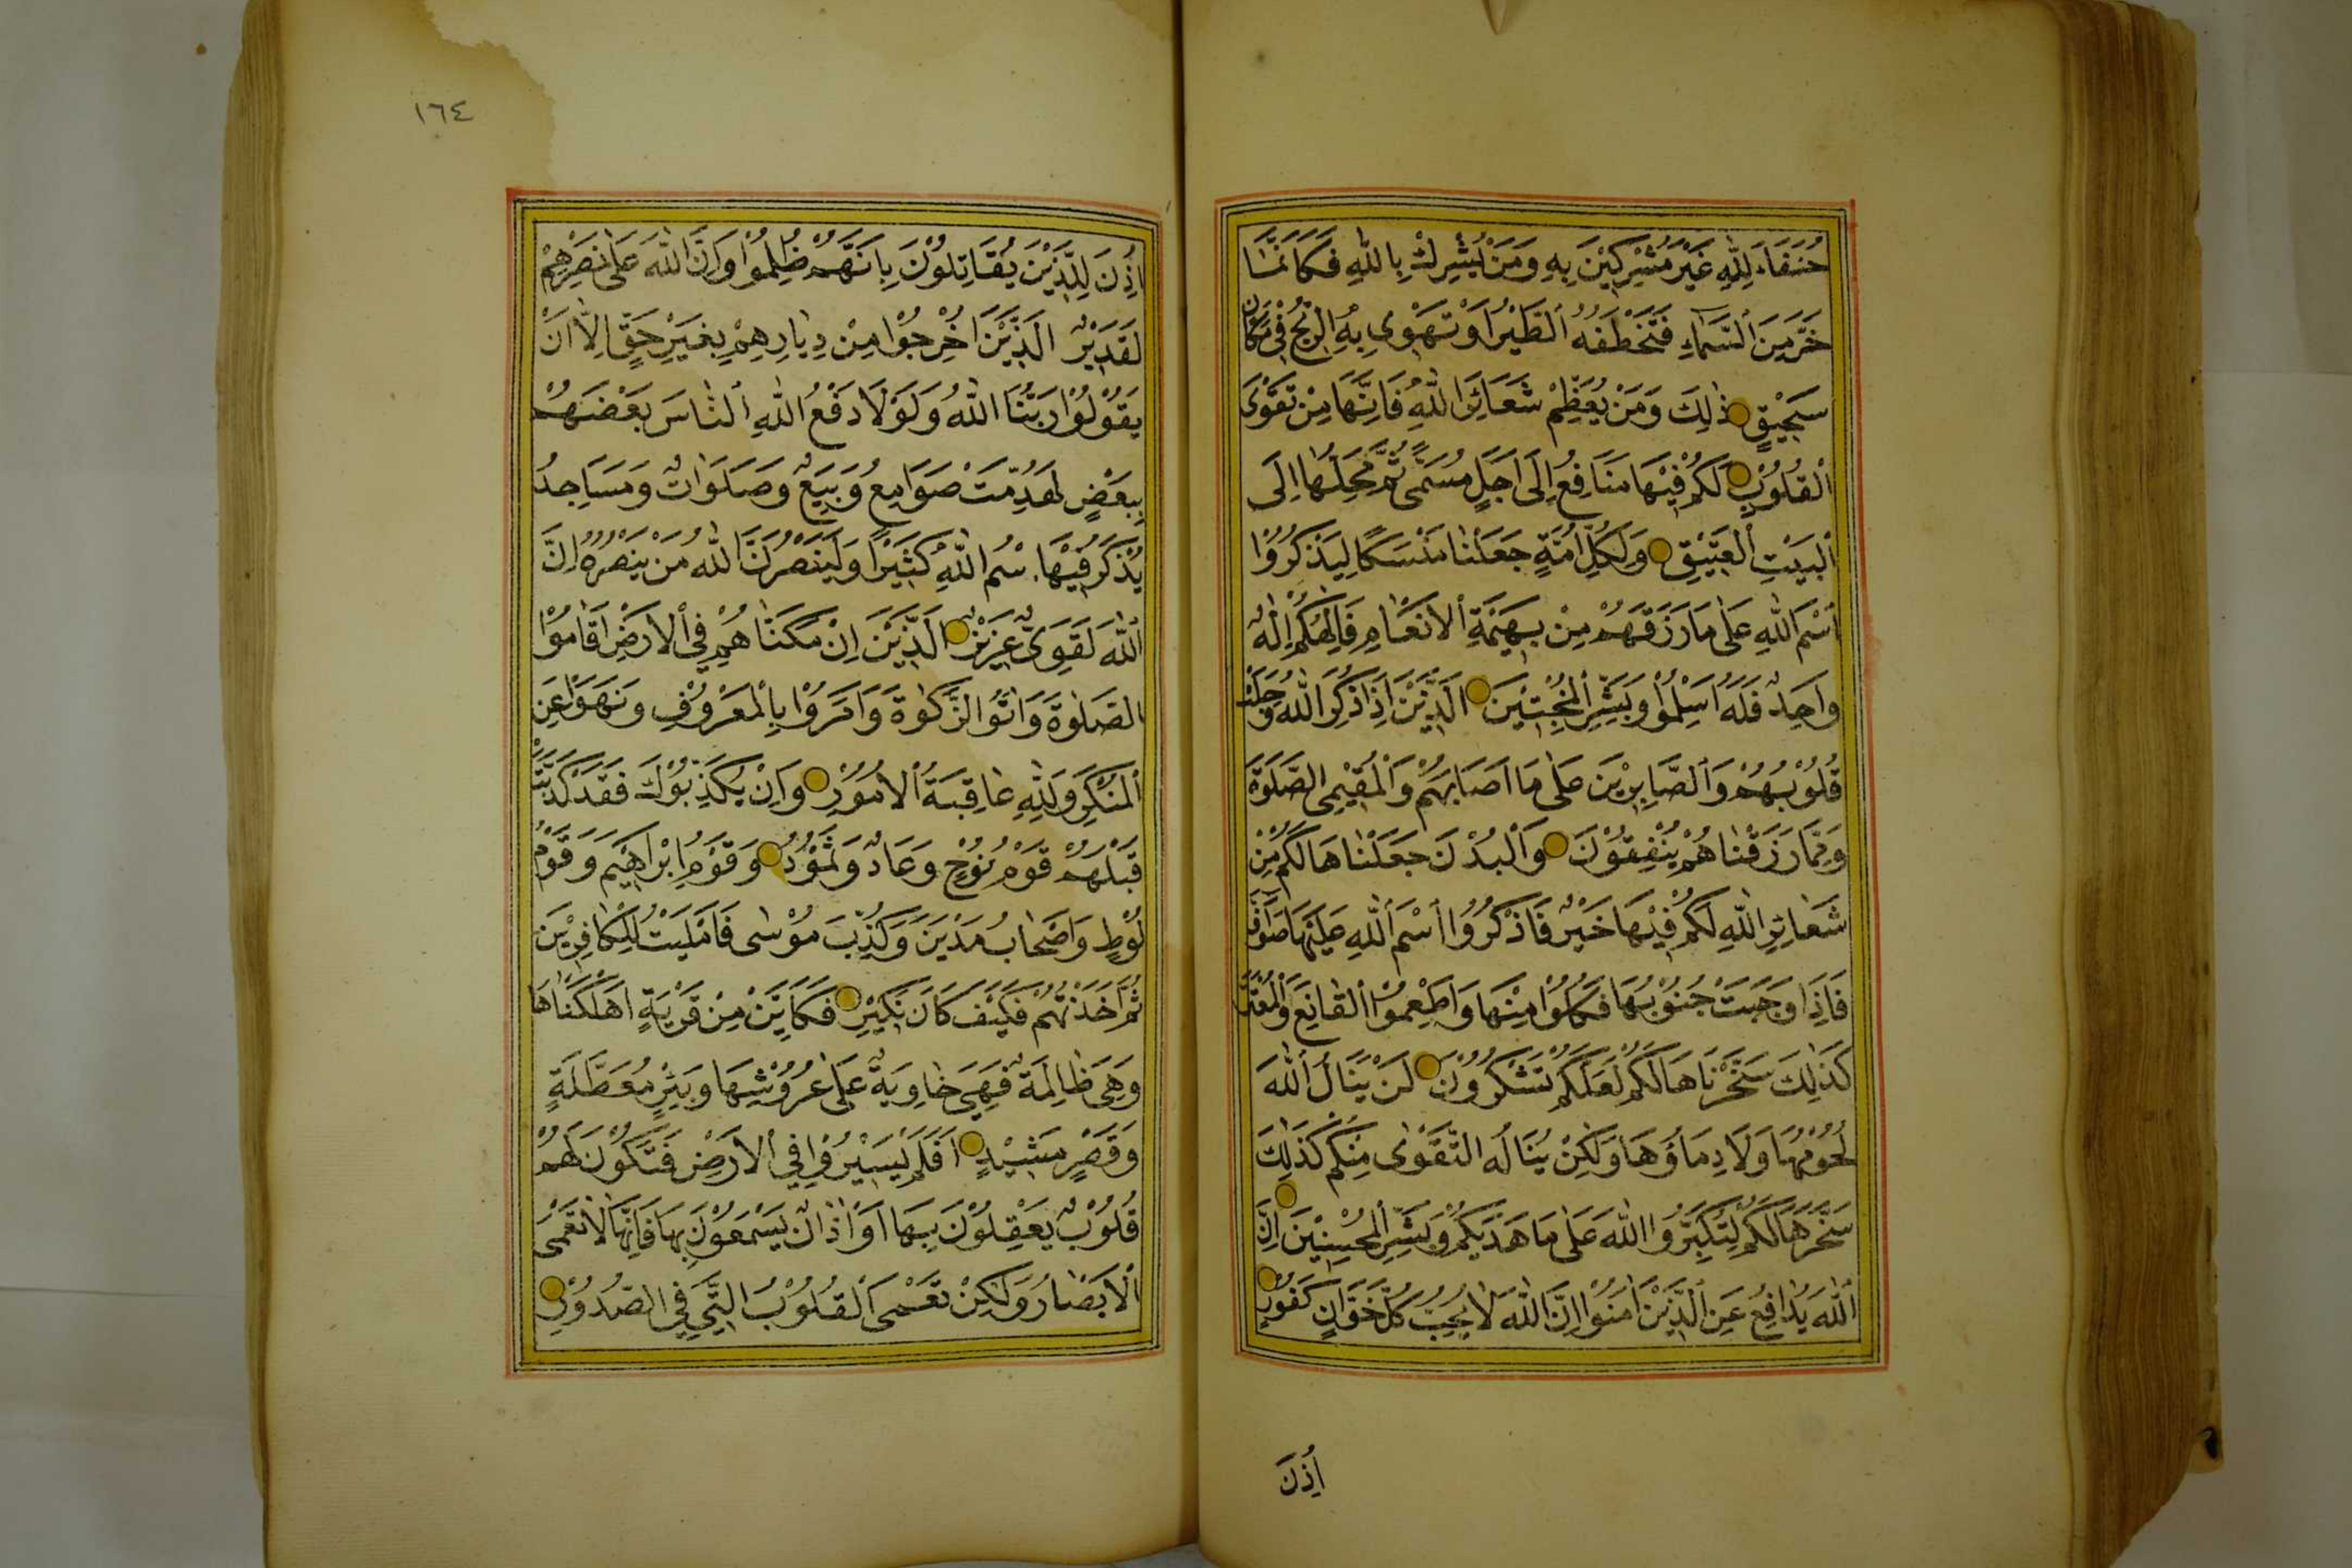 حُنَفَاءَ لِلّٰهِ غَيْرَ مُشْرِكِيْنَ بِهِ وَمَنْ يُشْرِكْ بِاللّٰهِ فَكَاَنَّمَا
خَرَّ مِنَ السَّمَاءِ فَتَخْطَفُهُ الطَّيْرُ اَوْ تَهْوِى بِهِ الرِّيْحُ فِى مَكَانٍ
سَحِيْقٍ ذٰلِكَ وَمَنْ يُعَظِّمْ شَعَائِرَ اللّٰهِ فَاِنَّهَا مِنْ تَقْوَى
الْقُلُوْبِ لَكُمْ فِيْهَا مَنَافِعُ اِلَى اَجَلٍ مُسَمًّى ثُمَّ مَحِلُّهَا اِلَى
الْبَيْتِ الْعَتِيْقِ وَلِكُلِّ اُمَّةٍ جَعَلْنَا مَنْسَكًا لِيَذْكُرُوْا
اسْمَ اللّٰهِ عَلٰى مَا رَزَقَهُمْ مِنْ بَهِيْمَةِ الْاَنْعَامِ فَاِلٰهُكُمْ اِلٰهٌ
وَاحِدٌ فَلَهُ اَسْلِمُوْا وَبَشِّرِ الْمُخْبِتِيْنَ الَّذِيْنَ اِذَا ذُكِرَ اللّٰهُ وَجِلَتْ
قُلُوْبُهُمْ وَالصَّابِرِيْنَ عَلٰى مَا اَصَابَهُمْ وَالْمُقِيْمِى الصَّلٰوةِ
وَمِمَّا رَزَقْنَاهُمْ يُنْفِقُوْنَ وَالْبُدْنَ جَعَلْنَاهَا لَكُمْ مِنْ
شَعَائِرِ اللّٰهِ لَكُمْ فِيْهَا خَيْرٌ فَاذْكُرُوا اسْمَ اللّٰهِ عَلَيْهَا صَوَافَّ
فَاِذَا وَجَبَتْ جُنُوْبُهَا فَكُلُوْا مِنْهَا وَاَطْعِمُوا الْقَانِعَ وَالْمُعْتَرَّ
كَذٰلِكَ سَخَّرْنَاهَا لَكُمْ لَعَلَّكُمْ تَشْكُرُوْنَ لَنْ يَنَالَ اللّٰهَ
لُحُوْمُهَا وَلَا دِمَاؤُهَا وَلٰكِنْ يَنَالُهُ التَّقْوٰى مِنْكُمْ كَذٰلِكَ
سَخَّرَهَا لَكُمْ لِتُكَبِّرُوا اللّٰهَ عَلٰى مَا هَدٰيكُمْ وَبَشِّرِ الْمُحْسِنِيْنَ اِنَّ
اللّٰهَ يُدَافِعُ عَنِ الَّذِيْنَ اٰمَنُوْا اِنَّ اللّٰهَ لَا يُحِبُّ كُلَّ خَوَّانٍ كَفُوْرٍ
اُذِنَ
١٦٤
اُذِنَ لِلَّذِيْنَ يُقَاتِلُوْنَ بِاَنَّهُمْ ظُلِمُوْا وَاِنَّ اللّٰهَ عَلٰى نَصْرِهِمْ
لَقَدِيْرٌ الَّذِيْنَ اُخْرِجُوْا مِنْ دِيَارِهِمْ بِغَيْرِ حَقٍّ اِلَّا اَنْ
يَقُوْلُوْا رَبُّنَا اللّٰهُ وَلَوْلَا دَفْعُ اللّٰهِ النَّاسَ بَعْضَهُمْ
بِبَعْضٍ لَهُدِّمَتْ صَوَامِعُ وَبِيَعٌ وَصَلَوَاتٌ وَمَسَاجِدُ
يُذْكَرُ فِيْهَا اسْمُ اللّٰهِ كَثِيْرًا وَلَيَنْصُرَنَّ اللّٰهُ مَنْ يَنْصُرُهُ اِنَّ
اللّٰهَ لَقَوِىٌّ عَزِيْزٌ الَّذِيْنَ اِنْ مَكَنَّاهُمْ فِى الْاَرْضِ اَقَامُوْا
الصَّلٰوةَ وَاٰتَوُا الزَّكٰوةَ وَاَمَرُوْا بِالْمَعْرُوْفِ وَنَهَوْا عَنِ
الْمُنْكَرِ وَلِلّٰهِ عَاقِبَةُ الْاُمُوْرِ وَاِنْ يُكَذِّبُوْكَ فَقَدْ كَذَّبَتْ
قَبْلَهُمْ قَوْمُ نُوْحٍ وَعَادٌ وَثَمُوْدُ وَقَوْمُ اِبْرَاهِيْمَ وَقَوْمُ
لُوْطٍ وَاَصْحَابُ مَدْيَنَ وَكُذِّبَ مُوْسٰى فَاَمْلَيْتُ لِلْكَافِرِيْنَ
ثُمَّ اَخَذْتُهُمْ فَكَيْفَ كَانَ نَكِيْرِ فَكَاَيِّنْ مِنْ قَرْيَةٍ اَهْلَكْنَاهَا
وَهِىَ ظَالِمَةٌ فَهِىَ خَاوِيَةٌ عَلٰى عُرُوْشِهَا وَبِئْرٍ مُعَطَّلَةٍ
وَقَصْرٍ مَشِيْدٍ اَفَلَمْ يَسِيْرُوْا فِى الْاَرْضِ فَتَكُوْنَ لَهُمْ
قُلُوْبٌ يَعْقِلُوْنَ بِهَا اَوْ اٰذَانٌ يَسْمَعُوْنَ بِهَا فَاِنَّهَا لَا تَعْمَى
الْاَبْصَارُ وَلٰكِنْ تَعْمَى الْقُلُوْبُ الَّتِى فِى الصُّدُوْرِ